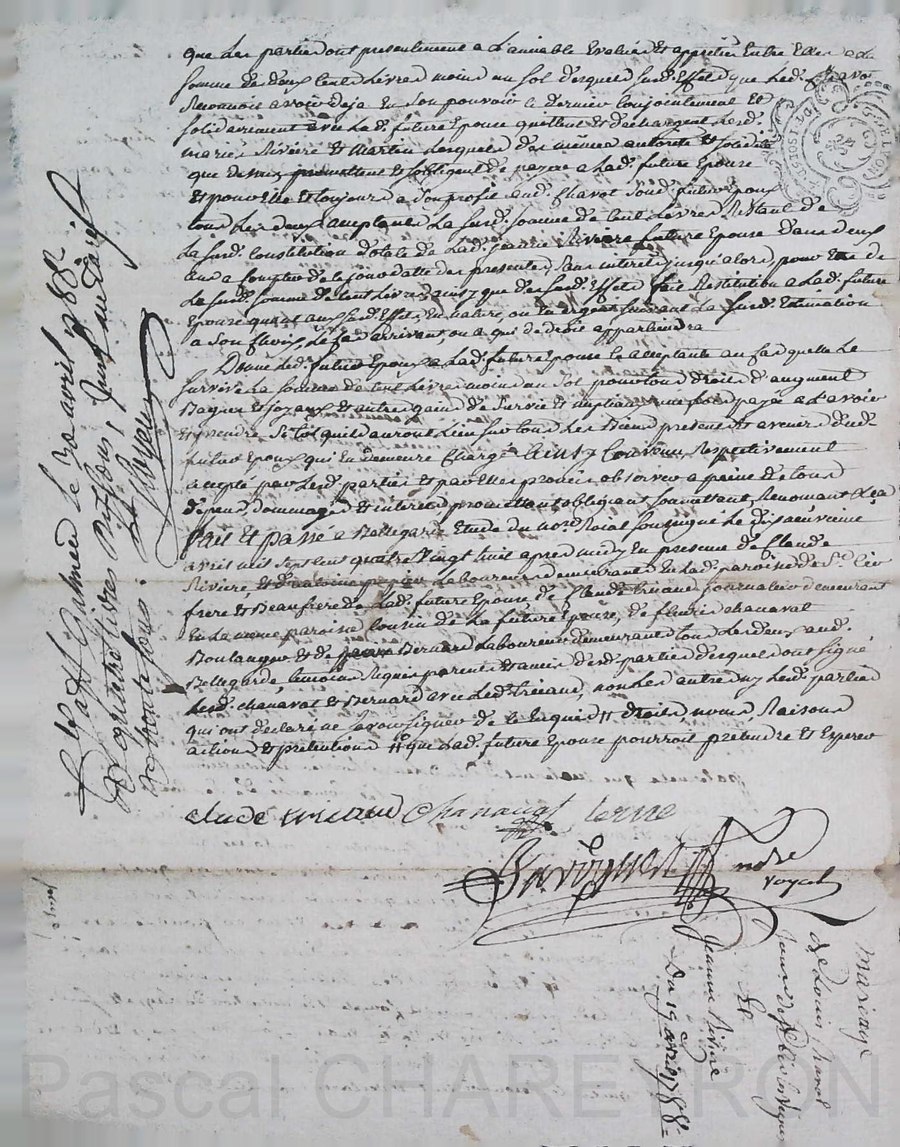 que les parties ont presentement a l'amiable Evalués Et appretiés Entre Elles a la
somme de deux Cents Livres moins un sol desquels susd. Effets que led. Chavot
Reconnoit avoir deja En son pouvoir le dernier Conjointement Et
solidairement avec Lad. future Epouse quittent et dechargent Lesd.
mariés Riviere Et Martin Lesquels des mêmes autorité Et solidité
que dessus promettent et sobligent de payer a Lad. future Epouse
Et pour Elle Et toujours a son profit aud. Chavot sond. futur Epoux
tous Les deux acceptants La susd. somme de Cent Livres Restant de
La susd. Constitution dotale de Lad. Jeanne Riviere future Epouse dans deux
ans a Compter de ce jour datte des presentes sans interets jusqu'alors pour Etre de
La susd. somme de Cent Livres ainsy que des susd. Effets fait Restitution a Lad. future
Epouse quant aux susd. Effets En nature, ou En argent suivant La susd. Estimation
a son Choix, Le Cas arrivant, ou a qui de droit appartiendra
Donne Led. futur Epoux a Lad. future Epouse Ce acceptante au Cas quelle Le
survive La somme de Cent Livres moins un sol pour tous droits d'augment
Bagues Et joyaux Et autres gains de survie Et nuptiaux une fois payée a L'avoir
Et prendre sitot quils auront Lieu sur tous Les Biens presents Et avenir dud.
futur Epoux qui En demeure Chargé Ainsy Convenu, Respectivement
accepté par Lesd. parties Et par Elles promis observer a peine de tous
depens, dommages Et interets promettant obligeant soumettant, Renonçant &ca
fait Et passé a Bellegarde Etude du no.re Roial soussigné Le dixneuvieme
avril mil sept cent quatre Vingt huit apres midy En presence de Claude
Riviere Et de Laboureurs demeurants En Lad. paroisse de St.
frere Et Beaufrere de Lad. future Epouse de Claude Triaud journalier demeurant
En La même paroisse Cousin de La future Epouse, de fleurie Chanavat
Boulanger Et de Bernard Laboureur demeurants tous Les deux aud.
Bellegarde temoins Requis parents Et amis desd. parties desquels ont signé
Lesd. Chanavat Et Bernard avec Led. Triaud, non Les autres ny Lesd. parties
qui ont declaré ne savoir signer de ce Enquis # droits, noms, Raisons
actions Et pretentions # que Lad. future Epouse pourroit pretendre Et Esperer
claude triaud Chanavat
Davignon no.re
royal
Le 30 avril 1788
quatre livres
mariage
de Louis Chavot
Et
Jeanne Riviere
Du 19 avril 1788
Pascal CHAREYRON